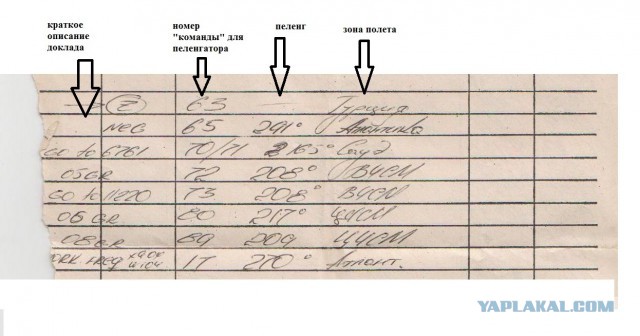 краткое
описание
доклада
номер
"команды" для
пеленгатора
пеленг
зона полета
Z 63 — Турция
NEG 65 291°
GO to 6761 70/71 165°
05GR 72 208° ВЧСМ
GO to 11220 73 208° ВЧСМ
06 GR 80 217° ЦЧСМ
08GR 89 209 ЦЧСМ
FREQ 17 270° Атлант.
YAPLAKAL.COM